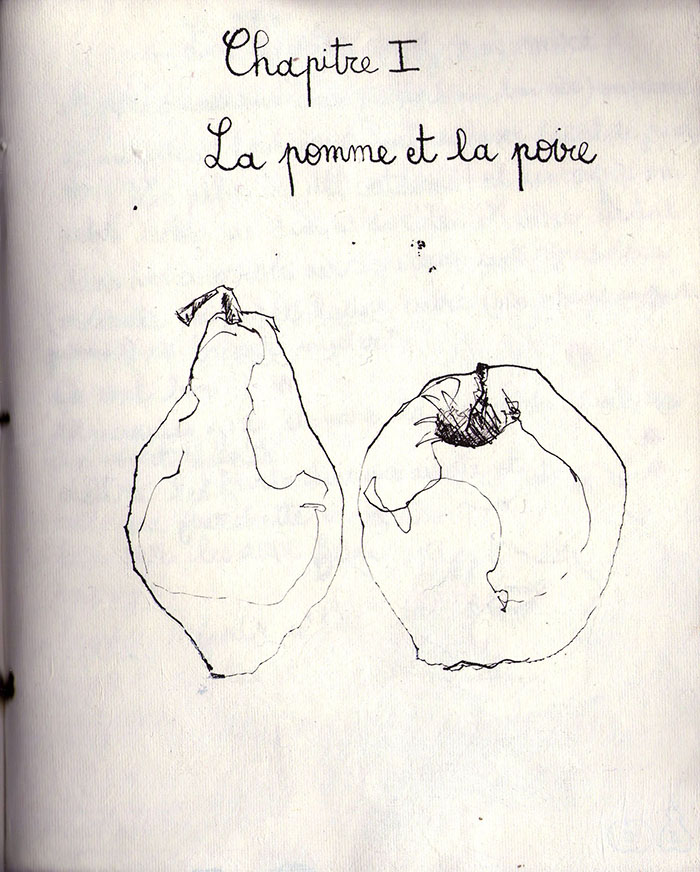 Chapitre I
La pomme et la poire